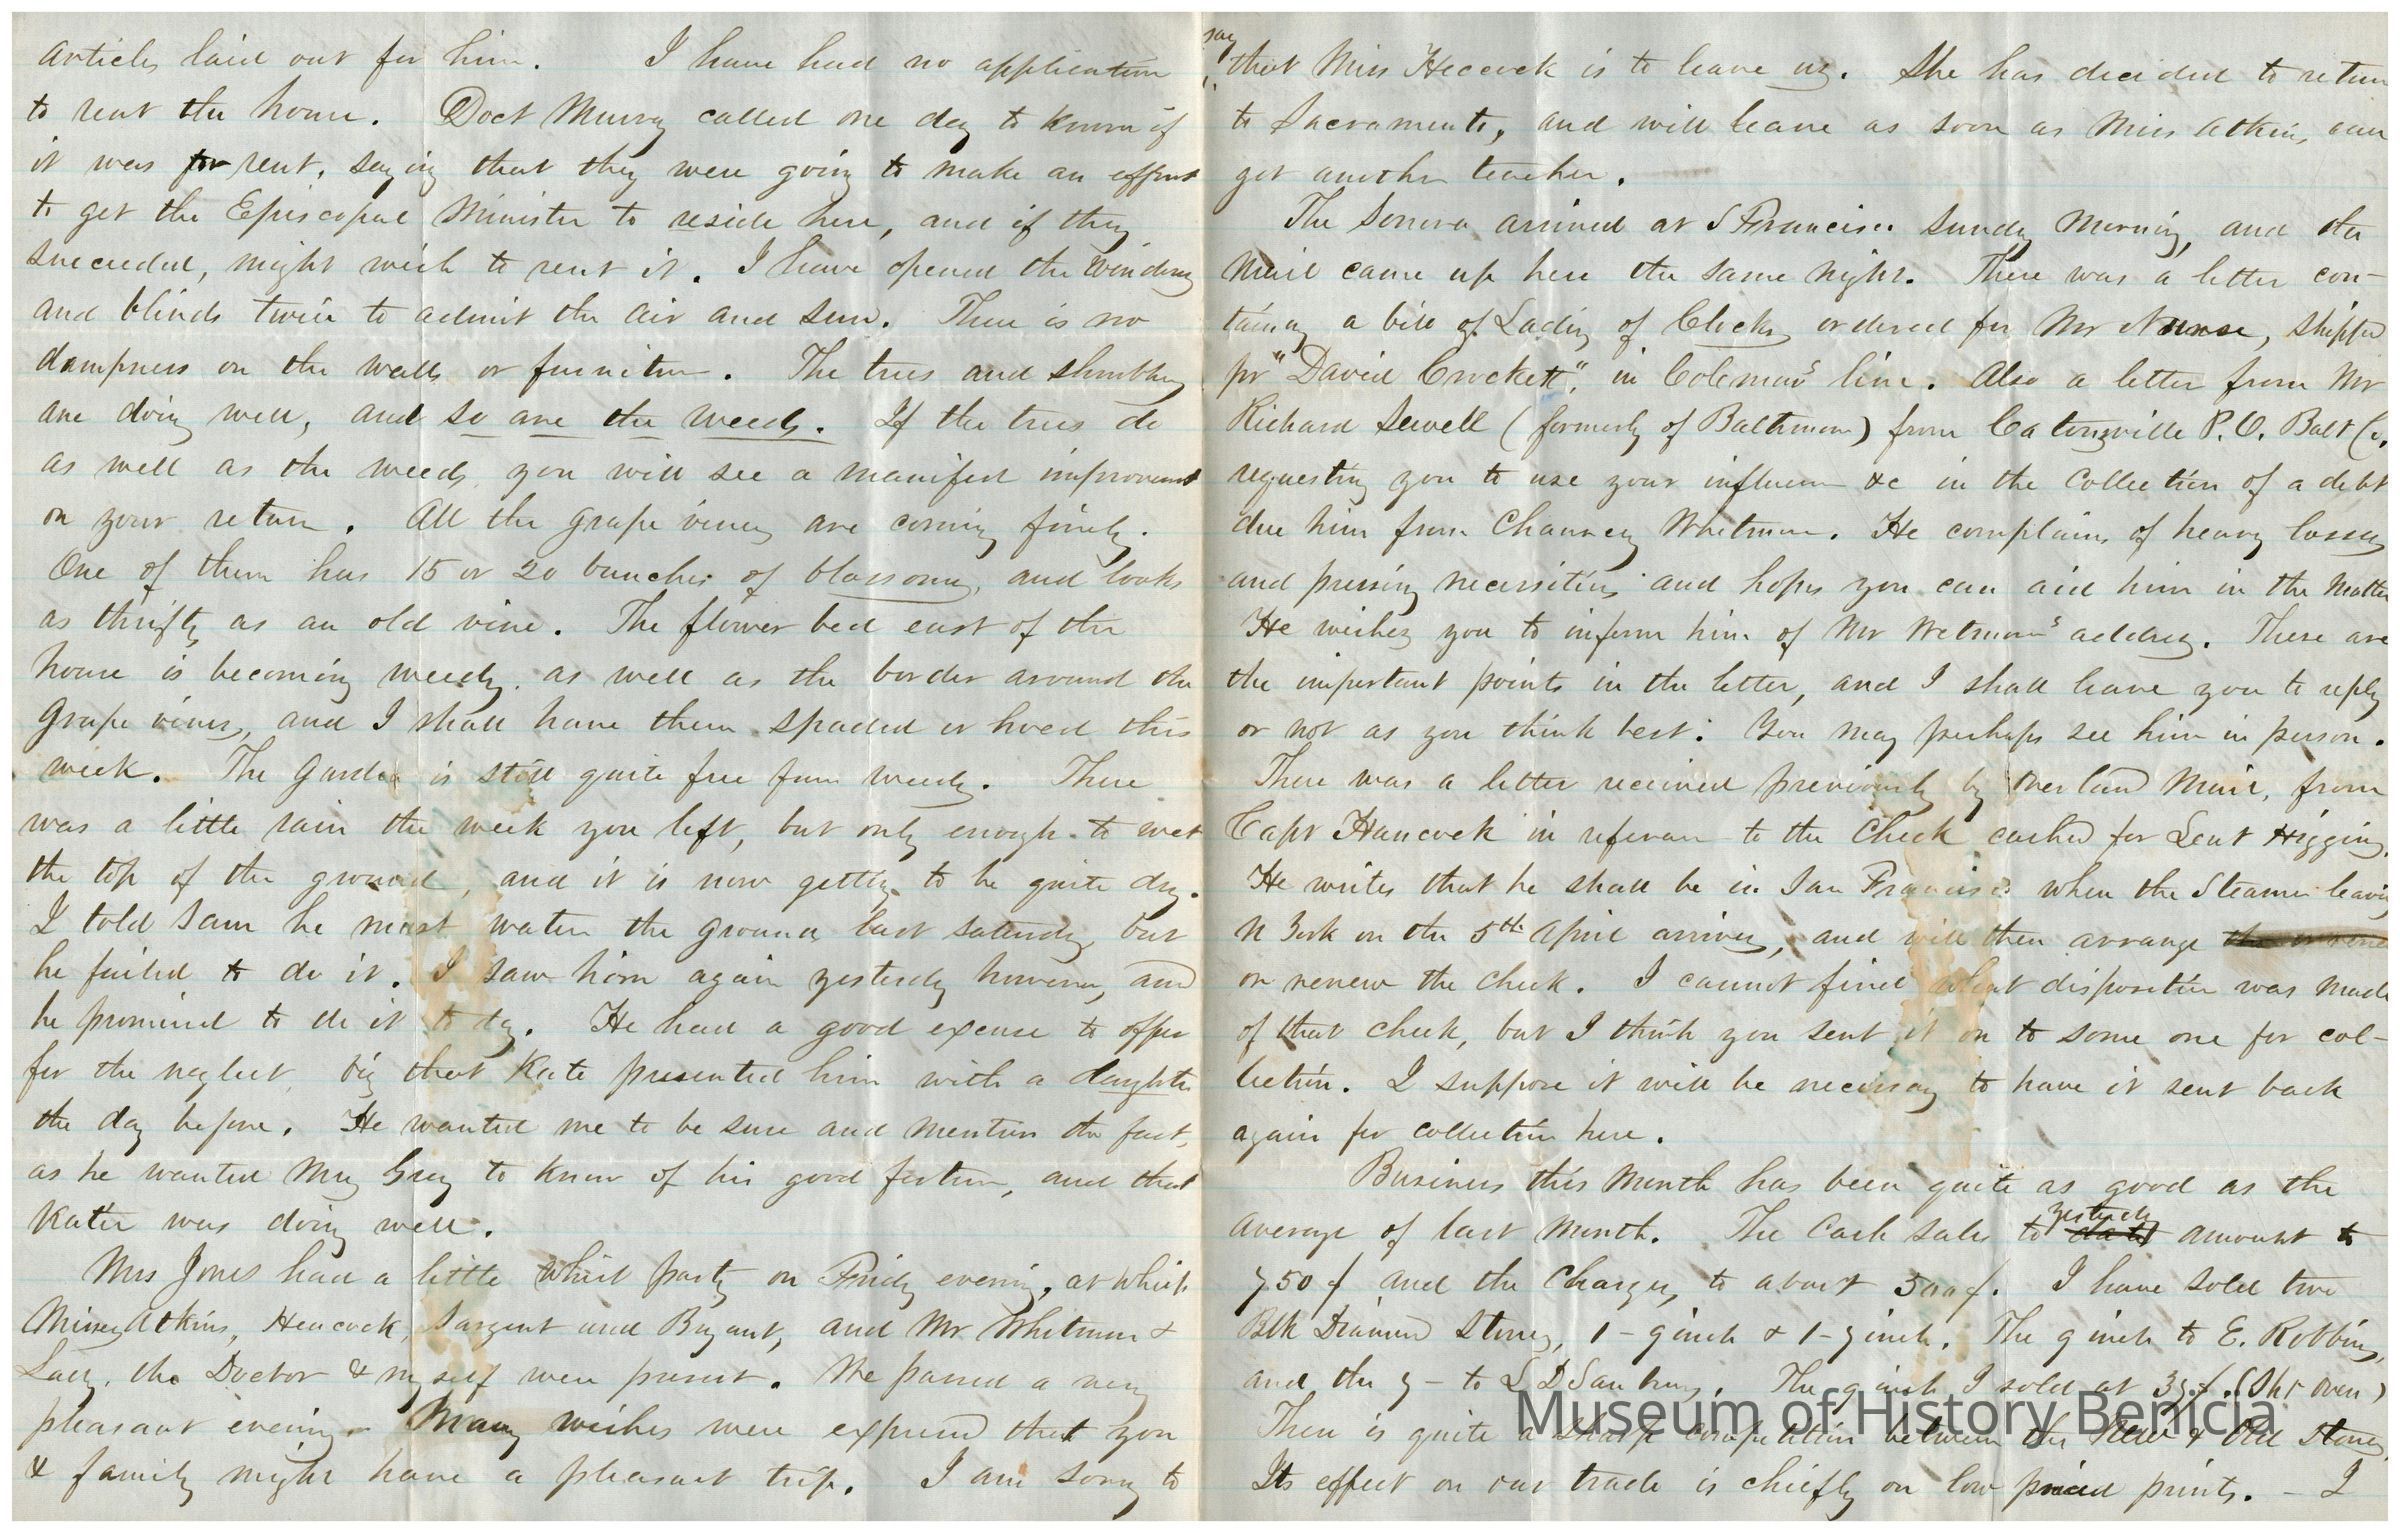 articles laid out for him. I have had no application
to rent the house. Doct Murray called one day to know if
it was for rent, saying that they were going to make an effort
to get the Episcopal Minister to reside here, and if they
succeeded, might wish to rent it. I have opened the windows
and blinds twice to admit the air and sun. There is no
dampness on the walls or furniture. The trees and shrubbery
are doing well, and so are the weeds. If the trees do
as well as the weeds you will see a manifest improvement
on your return. All the grape vines are coming finely.
One of them has 15 or 20 bunches of blossoms, and looks
as thrifty as an old vine. The flower bed east of the
house is becoming weedy, as well as the border around the
grape vines, and I shall have them spaded or hoed this
week. The Garden is still quite free from weeds. There
was a little rain the week you left, but only enough to wet
the top of the ground, and it is now getting to be quite dry.
I told Sam he must water the ground last saturday, but
he failed to do it. I saw him again yesterday however, and
he promised to do it to day. He had a good excuse to offer
for the neglect, viz that Kate presented him with a daughter
the day before. He wanted me to be sure and mention the fact,
as he wanted Mrs Gray to know of his good fortune, and that
Katie was doing well.
Mrs Jones had a little whist party on Friday evening, at which
Misses Atkins, Heacock, Sargent and Bryant, and Mr Whitman &
Lady, the Doctor & myself were present. We passed a very
pleasant evening. Many wishes were expressed that you
& family might have a pleasant trip. I am sorry to
say
that Miss Heacock is to leave us. She has decided to return
to Sacramento, and will leave as soon as Miss Atkins can
get another teacher.
The Sonora arrived at S Francisco Sunday Morning, and the
Mail came up here the same night. There was a letter con-
taining a bill of Lading of Clocks ordered for Mr Nurse, shipped
pr "David Crockett", in Coleman's line. Also a letter from Mr
Richard Sewell (formerly of Baltimore) from Catonsville P.O. Balt Co,
requesting you to use your influence &c in the collection of a debt
due him from Chauncey Whetmore. He complains of heavy losses
and pressing necessities and hopes you can aid him in the matter
He wishes you to inform him of Mr Wetmore's address. These are
the important points in the letter, and I shall leave you to reply
or not as you think best: You may perhaps see him in person.
There was a letter received previously by overland Mail, from
Capt Hancock in referance to the check cashed for Leut Higgins.
He writes that he shall be in San Francisco when the Steamer leaving
N York on the 5th April arrives, and will then arrange
or renew the check. I cannot find what disposition was made
of that check, but I think you sent it on to some one for col-
lection. I suppose it will be necessary to have it sent back
again for collection here.
Business this Month has been quite as good as the
average of last Month. The Cash sales to yesterday date amount to
750$ and the Charges, to about 500$. I have sold two
Blk Diamond Stoves, 1-9 inch & 1-7 inch. The 9 inch to E. Robbins,
and the 7- to L D Sanbury. The 9 inch I sold at 37.$. (Sht Oven)
There is quite a sharp competition between the New & Old Stores,
Its effect on our trade is chiefly on low priced prints. - I
Museum of History Benicia